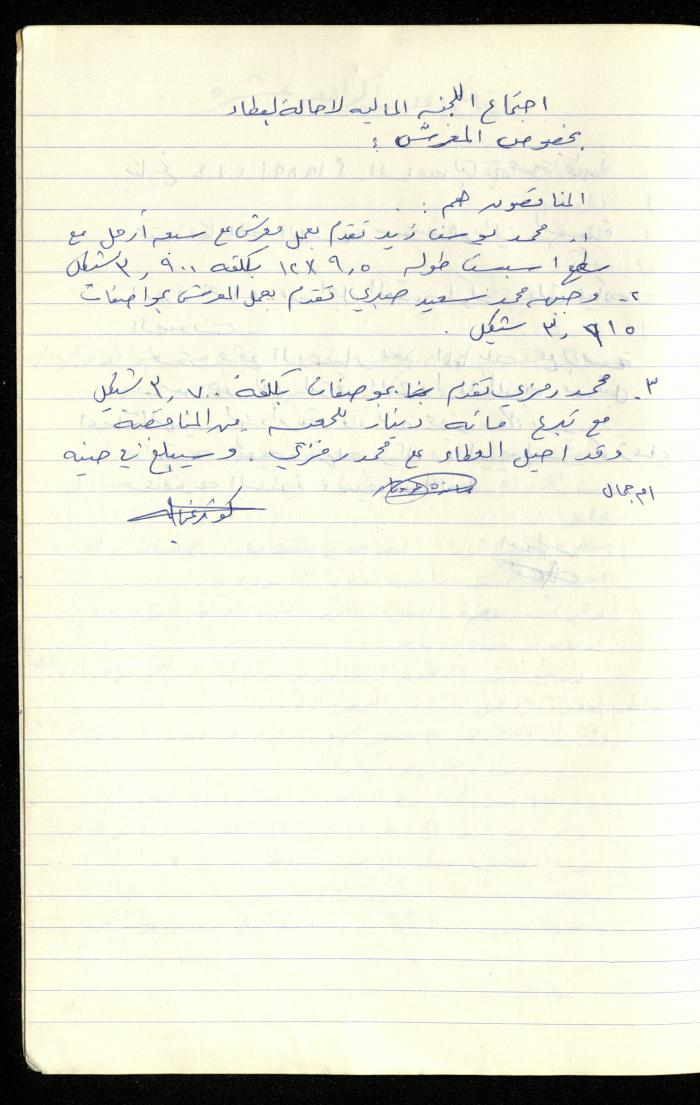 اجتماع اللجنه الماليه لاحالة لعطاء
بخصوص المعرش :
المناقصون هم :
١. محمد يوسف زيد تقدم بعمل معرش مع سبعه أرجل مع
سطح اسبست طوله ٩,٥ × ١٢ بكلفه ٣,٩٠٠ شيكل
٢- وجيه محمد سعيد صبري تقدم بعمل المعرش بمواصفات
٣,٩١٥ شيكل .
٣. محمد رمزي تقدم بموصفات بكلفة ٣,٧٠٠ شيكل
مع تبرع مائه دينار للجمعيه من المناقصة
وقد احيل العطاء على محمد رمزي . وسيبلغ في حينه
ام جمال